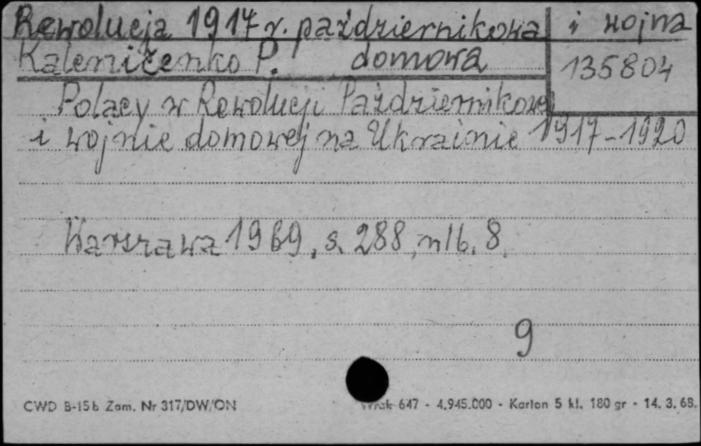 Rewolucja 1917 r. październikowa i wojna
Kaleničenko P. domowa 135804
Polacy w Rewolucji Październikowej
i wojnie domowej na Ukrainie 1917-1920
Warszawa 1969, s. 288, nlb. 8.
9
CWD B-15b Zam. Nr 317/DW/ON 647 - 4.945.000 - Karton 5 kl. 180 gr - 14. 3. 68.